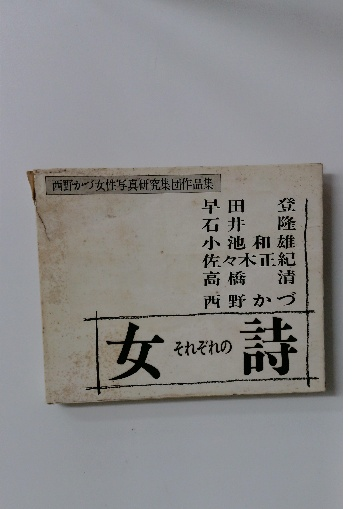 西野かづ女性写真研究集団作品集
早田 登
石井 隆
小池 和雄
佐々木正紀
高橋 清
西野かづ
女 それぞれの 詩